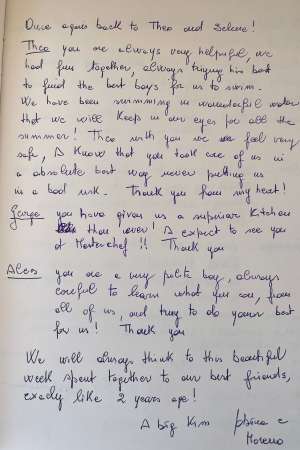 Once again back to Theo and Selene!
Theo you are always very helpful, we
had fun together, always trying his best
to find the best bays for us to swim.
We have been swimming in wonderful water
that we will keep in our eyes for all the
summer! Theo with you we feel very
safe, I know that you took care of us in
a absolute best way never putting us
in a bad risk. Thank you from my heart!
George you have given us a superior kitchen
than ever! I expect to see you
at Masterchef !! Thank you
Alex you are a very polite boy, always
careful to learn what you can, from
all of us, and try to do your best
for us! Thank you
We will always think to this beautiful
week spent together to our best friends,
exactly like 2 years ago!
A big kiss e
Moreno